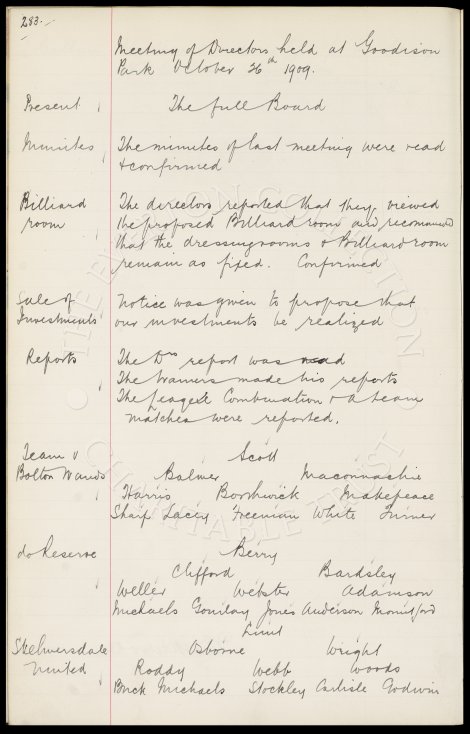 283.
Meeting of Directors held at Goodison
Park October 26th 1909.
Present The full Board
Minutes The minutes of last meeting were read
& confirmed
Billiard The directors reported that they viewed
room the proposed Billiard room and recommend
that the dressingrooms & Billiard room
remain as fixed. Confirmed
Sale of Notice was given to propose that
Investments our investments be realized
Reports The Drs report was read
The trainers made his reports
The League Combination & A team
matches were reported.
Team v Scott
Bolton Wands Balmer Maconnachie
Harris Borthwick Makepeace
Sharp Lacey Freeman White Turner
do Reserve Berry
Clifford Bardsley
Weller Webster Adamson
Michaels Gourlay Jones Anderson Mountford
Skelmersdale Osborne Wright
United Roddy Webb Woods
Buck Michaels Stockley Carlisle Godwin
THE EVERTON COLLECTION
CHARITABLE TRUST